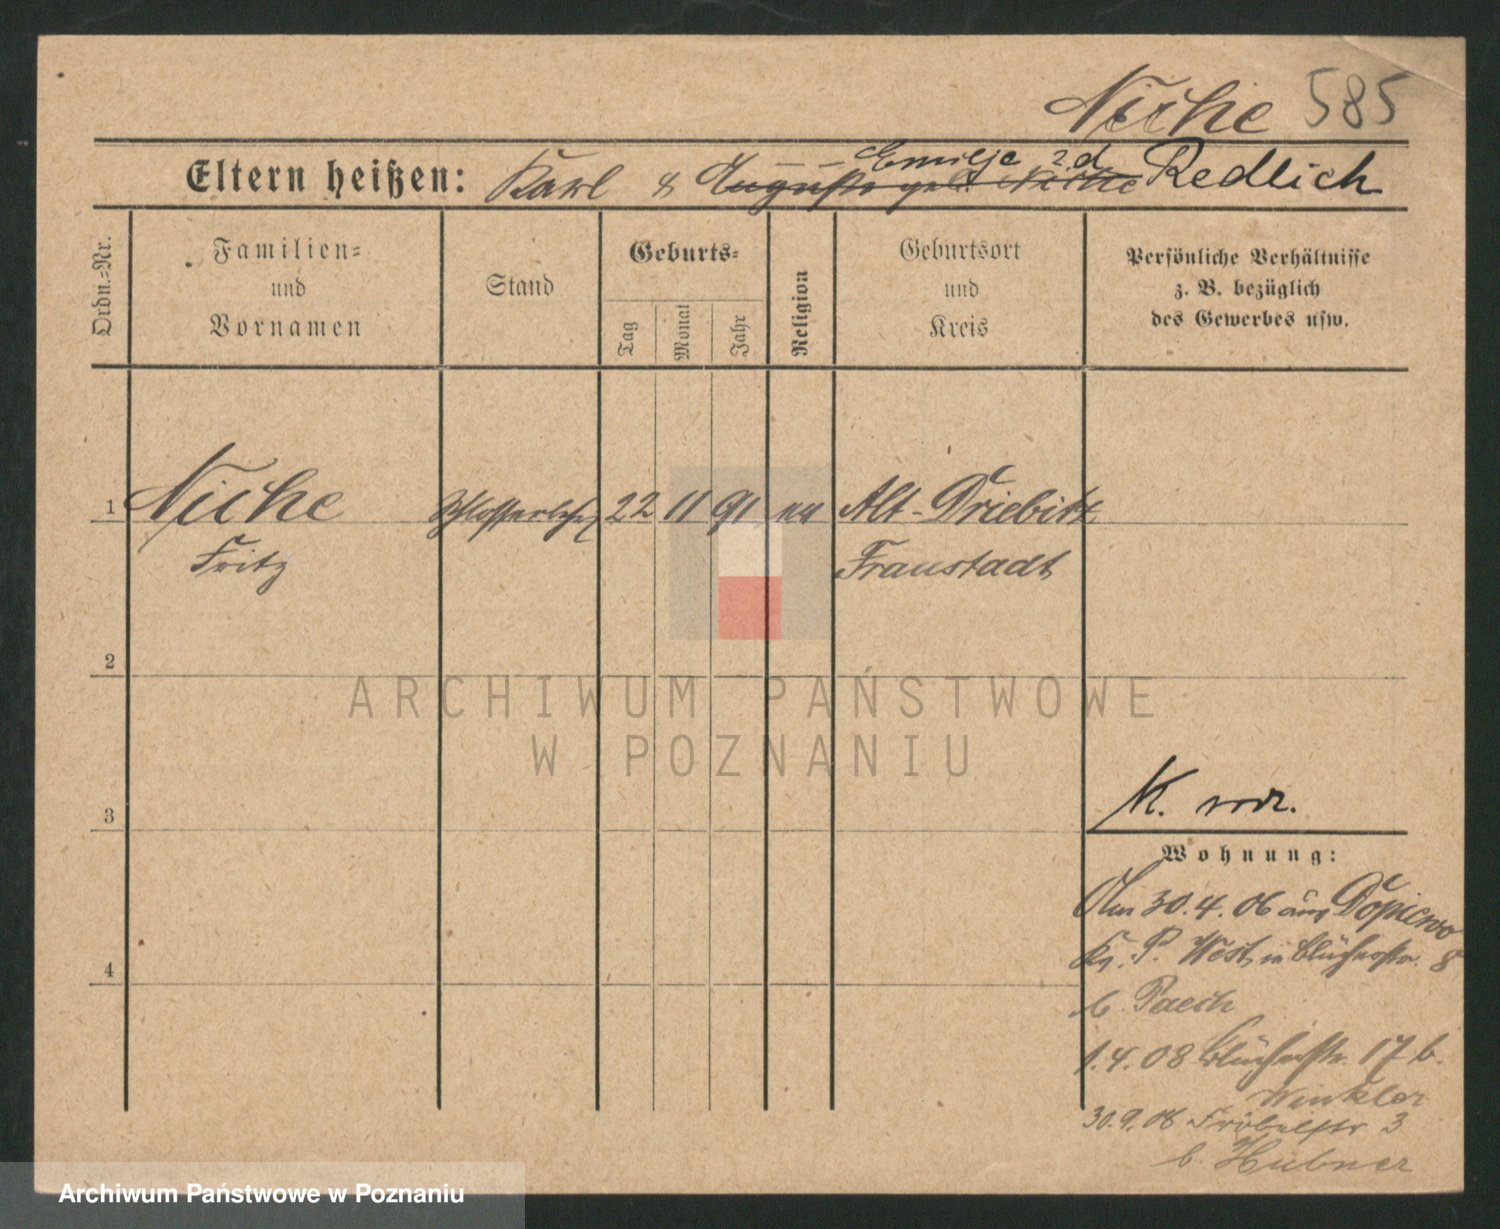 Niche 585
Emilje
Eltern heißen: Karl & Auguste geb. Niche Redlich
Ordn.=Nr.
Familien=
und
Vornamen
Stand
Geburts=
Tag
Monat
Jahr
Religion
Geburtsort
und
Kreis
Persönliche Verhältnisse
z. B. bezüglich
des Gewerbes usw.
1 Niche Schlosserlehrl 22 11 91 Alt-Driebitz
Fritz Fraustadt
2
3
4
ARCHIWUM PAŃSTWOWE
W POZNANIU
K.
Wohnung:
Am 30.4.06 aus Dopiewo
Kr. P. West in Blücherstr. 8
b. Paech
1.4.08 Blücherstr. 17 b.
Winkler
30.9.08 Fröbelstr 3
b. Hübner
Archiwum Państwowe w Poznaniu